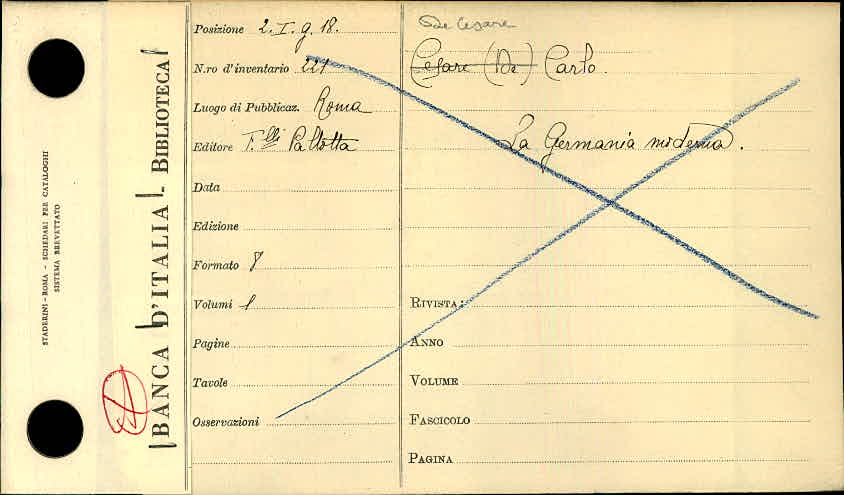 STADERINI - ROMA - SCHEDARI PER CATALOGHI
SISTEMA BREVETTATO
BANCA D'ITALIA - BIBLIOTECA
Posizione 2. I. g. 18.
N.ro d'inventario 221
Luogo di Pubblicaz. Roma
Editore F.lli Pallotta
Data
Edizione
Formato 8
Volumi 1
Pagine
Tavole
Osservazioni
De Cesare
Cesare (De) Carlo.
La Germania moderna.
RIVISTA:
ANNO
VOLUME
FASCICOLO
PAGINA